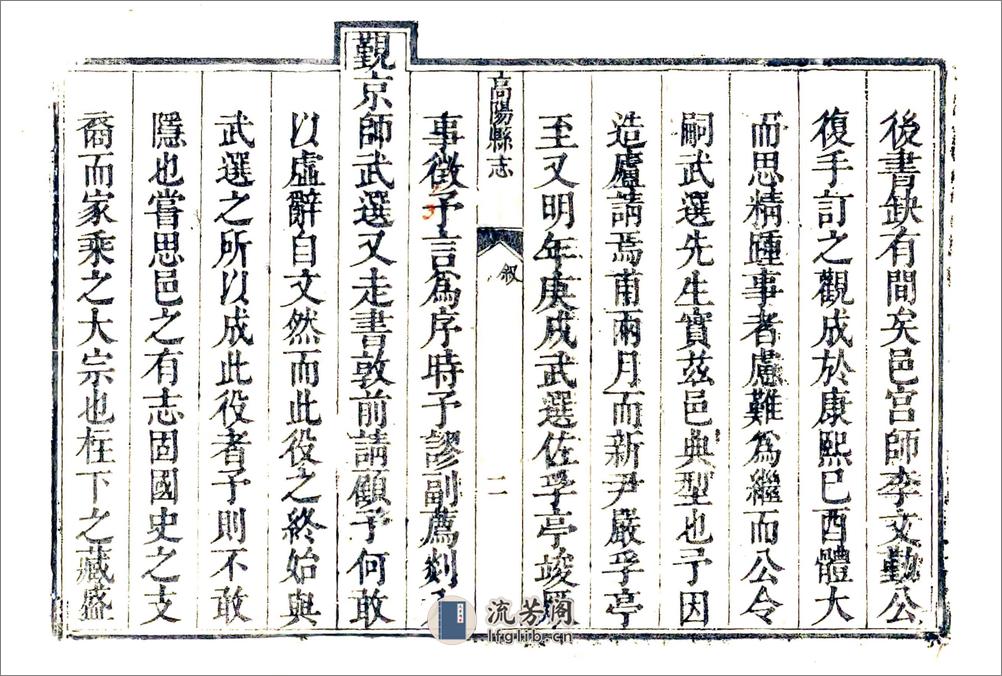 後書缺有間矣邑宫師李文勤公
復手訂之觀成於康熙己酉體大
而思精踵事者慮難為繼而公令
嗣武選先生實茲邑典型也予因
造廬請焉甫兩月而新尹嚴孚亭
至又明年庚戌武選佐孚亭竣厥
事徵予言為序時予謬副薦剡
高陽縣志
叙
二
覲京師武選又走書敦前請顧予何敢
以虛辭自文然而此役之終始與
武選之所以成此役者予則不敢
隱也嘗思邑之有志固國史之支
裔而家乘之大宗也柱下之藏盛
流芳阁
lfglib.cn